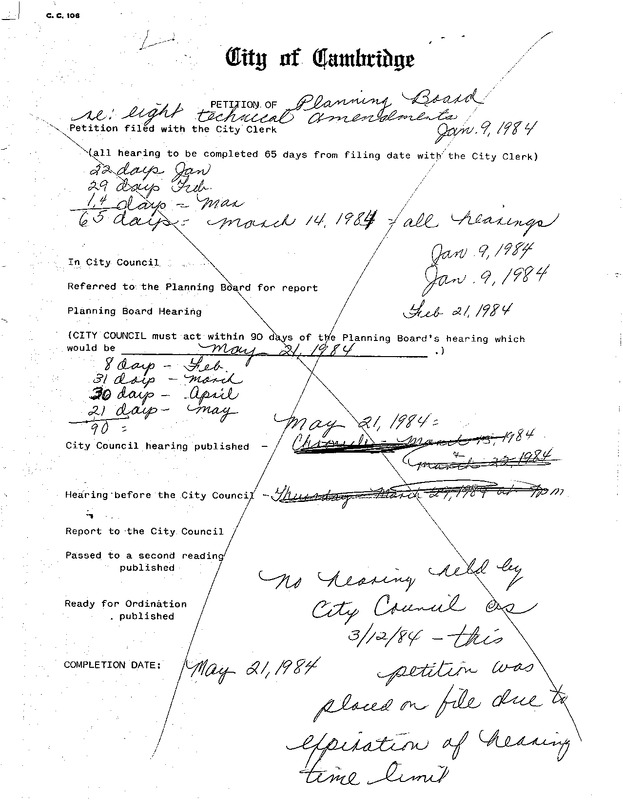 C. C. 106
City of Cambridge
PETITION OF Planning Board
re: eight technical amendments
Petition filed with the City Clerk Jan. 9, 1984
(all hearing to be completed 65 days from filing date with the City Clerk)
22 days Jan
29 days Feb.
14 days = Mar
65 days = March 14, 1984 = all hearings
In City Council Jan 9, 1984
Referred to the Planning Board for report Jan. 9, 1984
Planning Board Hearing Feb 21, 1984
(CITY COUNCIL must act within 90 days of the Planning Board's hearing which
would be May 21, 1984 .)
8 days - Feb.
31 days - March
30 days - April
21 days - May
90 =
May 21, 1984=
City Council hearing published - Chronicle - March 15, 1984
+ March 22, 1984
Hearing before the City Council - Thursday March 29, 1984 at 7pm
Report to the City Council
Passed to a second reading
published
Ready for Ordination
. published
No hearing held by
City Council as
3/12/84 - this
COMPLETION DATE: May 21, 1984 petition was
placed on file due to
expiration of hearing
time limit